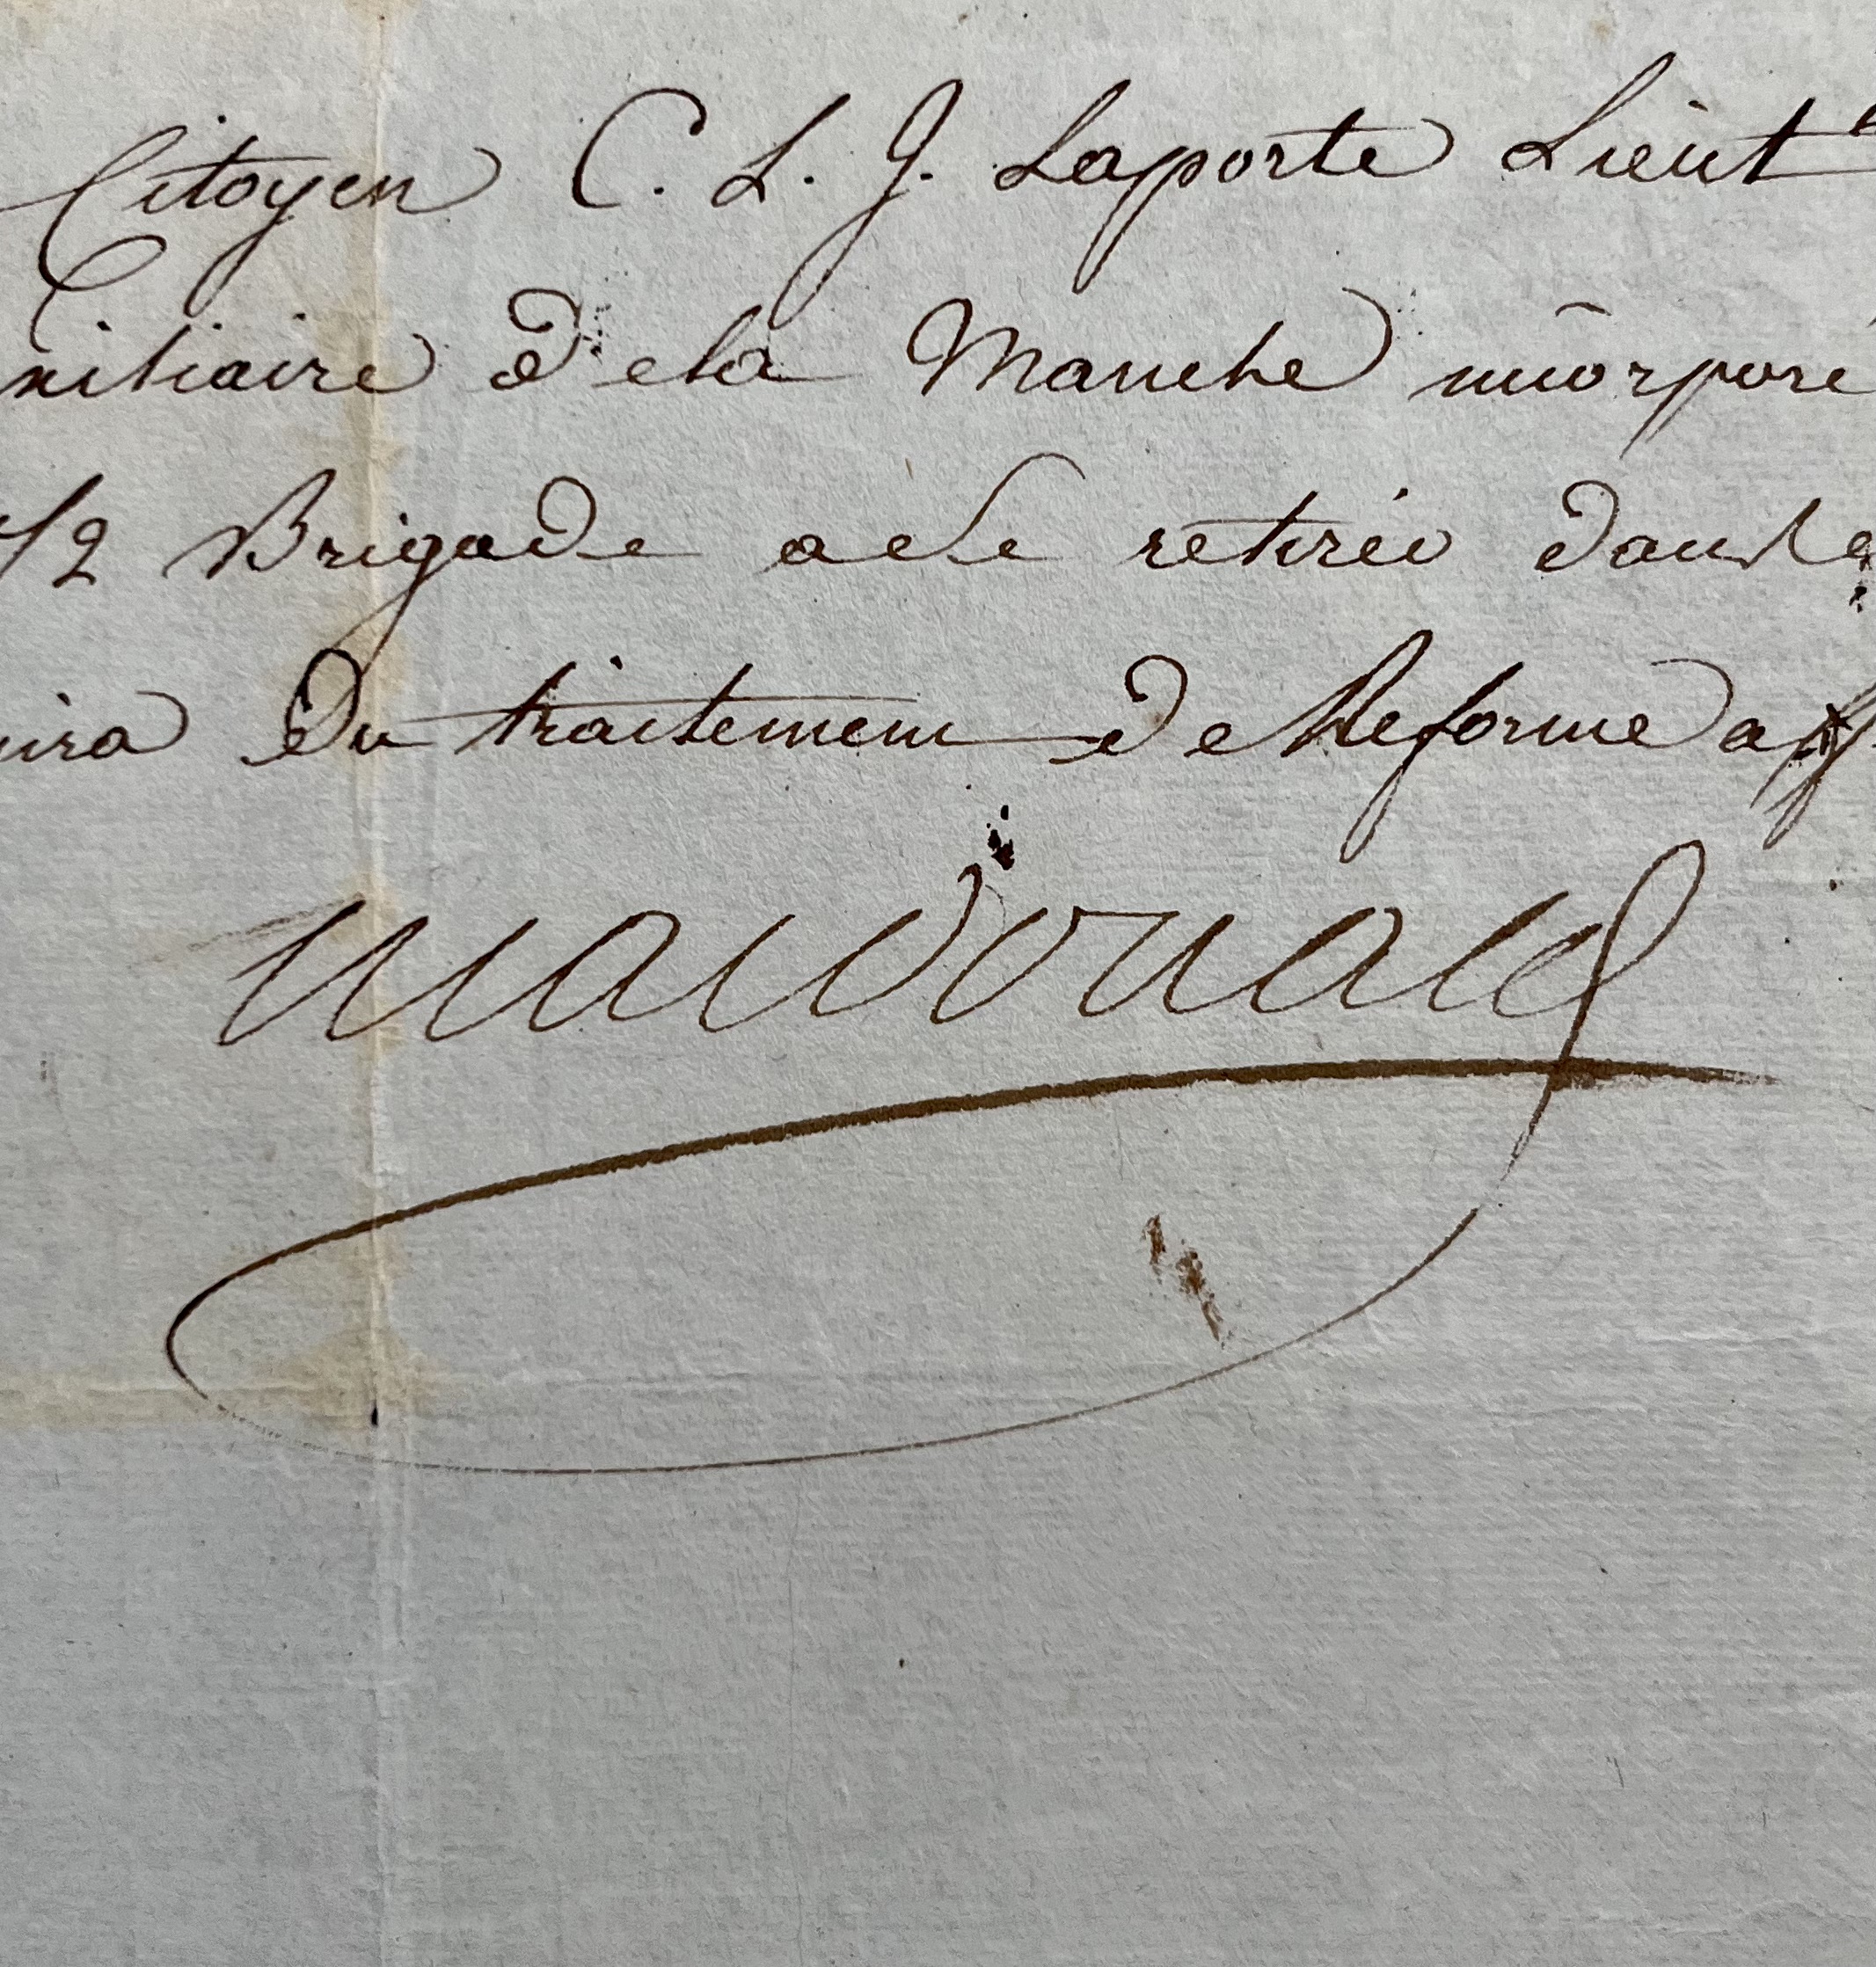 Citoyen C. L. J. Laporte Lieut
xiliaire de la Manche incorporé
1/2 Brigade a se retirer dans le
uira du traitement de Reforme aff
Macdonald